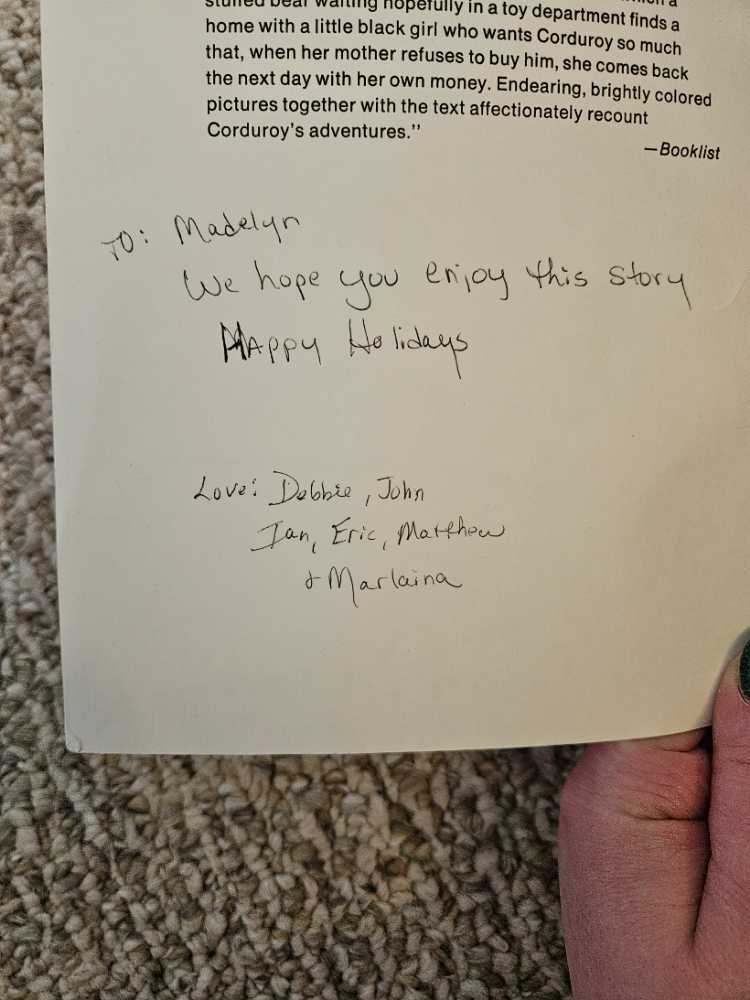 stuffed bear waiting hopefully in a toy department finds a
home with a little black girl who wants Corduroy so much
that, when her mother refuses to buy him, she comes back
the next day with her own money. Endearing, brightly colored
pictures together with the text affectionately recount
Corduroy's adventures."
—Booklist
TO: Madelyn
We hope you enjoy this story
HAPPY Holidays
Love: Debbie, John
Ian, Eric, Matthew
& Marlaina